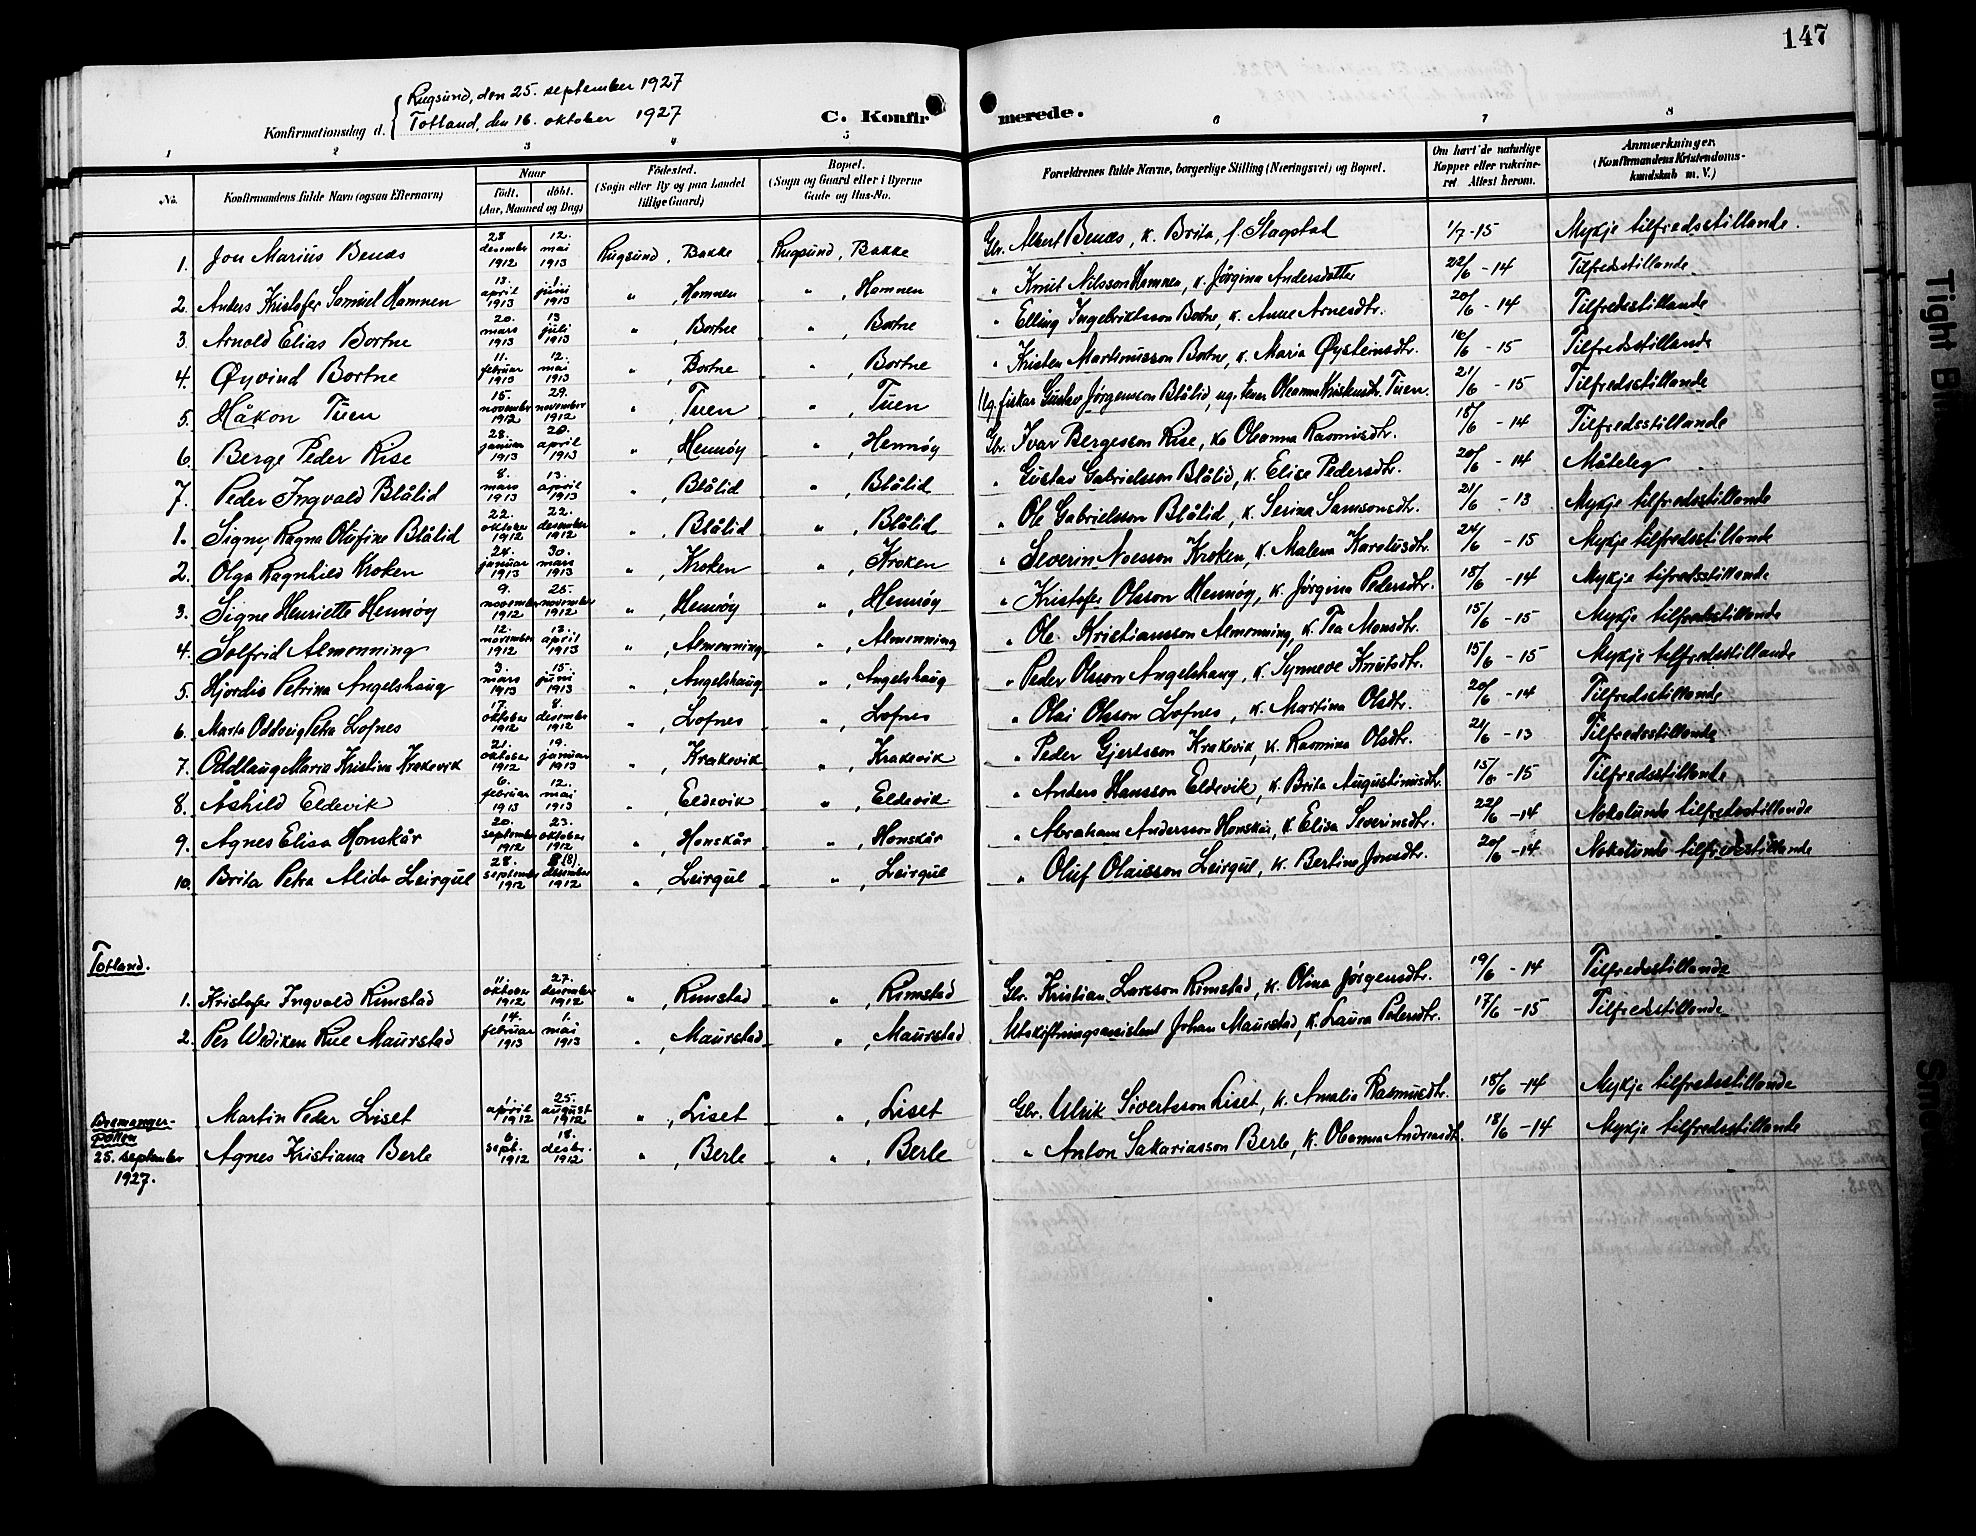 147
Rugsund, den 25. september 1927
Totland, den 16. oktober 1927
Konfirmationsdag d.
C. Konfirmerede.
1 2 3 4 5 6 7 8
No. Konfirmandens fulde Navn (ogsaa Efternavn) Naar født. døbt. (Aar, Maaned og Dag) Fødested. (Sogn eller By og paa Landet tillige Gaard) Bopæl. (Sogn og Gaard eller i Byerne Gade og Hus-No. Forældrenes fulde Navne, borgerlige Stilling (Næringsvei) og Bopæl. Om havt de naturlige Kopper eller vakcineret Attest herom. Anmærkninger. (Konfirmandens Kristendomskundskab m. V.)
1. Jon Marius Benæs 28 desember 1912 12. mai 1913 Rugsund, Bakke Rugsund, Bakke Gbr. Albert Benæs, k. Brita, f. Stagstad 1/7 -15 Mykje tilfredsstillande.
2. Anders Kristofer Samuel Hamnen 13. april 1913 1. juni 1913 " , Hamnen " , Hamnen " Knut Nilsson Hamnen, k. Jørgina Andersdatter 22/6 - 14 Tilfredsstillande
3. Arnold Elias Bortne 20. mars 1913 13 juli 1913 " , Bortne " , Bortne " Elling Ingebriktsson Bortne, k. Anne Arnesdtr. 20/6 - 14 Tilfredsstillande
4. Øyvind Bortne 11. februar 1913 12. mai 1913 " , Bortne " , Bortne " Kristen Martinusson Bortne, k. Maria Øysteinsdtr. 16/6 - 15 Tilfredsstillande
5. Håkon Tuen 15. november 1912 29. november 1912 " , Tuen " , Tuen Ug. fiskar Gustav Jørgensson Blålid, ug. Oleanna Tuen. 21/6 - 15 Tilfredsstillande
6. Berge Peder Rise 28. januar 1913 20. april 1913 " , Hennøy " , Hennøy Gbr. Ivar Bergesson Rise, k. Oleanna Rasmusdtr. 18/6 - 14 Tilfredsstillande
7. Peder Ingvald Blålid 8. mars 1913 13. april 1913 " , Blålid " , Blålid " Gustav Gabrielsson Blålid, k. Elise Pedersdtr. 20/6 - 14 Måteleg
1. Signy Ragna Olufine Blålid 22. oktober 1912 22. desember 1912 " , Blålid " , Blålid " Ole Gabrielsson Blålid, k. Serina Samsonsdtr. 21/6 - 13 Mykje tilfredsstillande
2. Olga Ragnhild Kroken 24. januar 1913 30. mars 1913 " , Kroken " , Kroken " Severin Kroken, k. Malena Karolusdtr. 24/6 - 15 Mykje tilfredsstillande
3. Signe Henriette Hennøy 9. november 1912 25. november 1912 " , Hennøy " , Hennøy " Kristofer Olsson Hennøy, k. Jørgina Pedersdtr. 18/6 -14 Mykje tifredsstillande
4. Solfrid Almenning 12. november 1912 13. april 1913 " , Almenning " , Almenning " Ole Kristiansson Almenning, k. Tea Monsdtr. 15/6 - 15 Mykje tilfredsstillande
5. Hjørdis Petrina Angelshaug 3. mars 1913 15. juni 1913 " , Angelshaug " , Angelshaug " Peder Olsson Angelshaug, k. Synneve Knutsdtr. 15/6 - 15 Mykje tilfredsstillande
6. Marta Oddbug Petra Lofnes 17. oktober 1912 8. desember 1912 " , Lofnes " , Lofnes " Olai Olsson Lofnes, k. Martina Olsdtr. 20/6 - 14 Tilfredsstillande
7. Oddlaug Maria Kristina Krakevik 21. oktober 1912 19. januar 1913 " , Krakevik " , Krakevik " Peder Gjertsson Krakevik, k. Rasmina Olsdtr. 21/6 - 13 Tilfredsstillande
8. Ashild Eldevik 6. februar 1913 12. mai 1913 " , Eldevik " , Eldevik " Anders Hansson Eldevik, k. Brita Augustinusdtr. 15/6 - 15 Tilfredsstillande
9. Agnes Elisa Honskår 20. september 1912 23. oktober 1912 " , Honskår " , Honskår " Abraham Andersson Honskår, k. Elisa Severinsdtr. 22/6 -14 Nokolunde tilfredsstillande
10. Brita Petra Alida Leirgul 28. september 1912 8 (8). desember 1912 " , Leirgul " , Leirgul " Oluf Olaisson Leirgul, k. Bertine Jonsdtr. 20/6 -14 Nokolunde tilfredsstillande
Totland.
1. Kristofer Ingvald Rimstad 11. oktober 1912 27. desember 1912 " , Rimstad " , Rimstad Gbr. Kristian Larsson Rimstad, k. Olina Jørgensdtr. 19/6 - 14 Tilfredsstillande
2. Per Wediken Rue Maurstad 14. februar 1913 1. mai 1913 " , Maurstad " , Maurstad Utskiftningsassistent Johan Maurstad, k. Laura Petersdtr. 17/6 -15 Tilfredsstillande
Bremanger-
pollen
25. september
1927.
Martin Peder Liset 1. april 1912 25. august 1912 " , Liset " , Liset Gbr. Ulrik Sivertsson Liset, k. Amalia Rasmusdtr. 18/6 -14 Mykje tilfredsstillande
Agnes Kristiana Berle 6. sept. 1912 18. desbr. 1912 " , Berle " , Berle " Anton Sakariasson Berle, k. Oleanna Andreasdtr. 18/6 -14 Mykje tilfredsstillande
Tight Bin